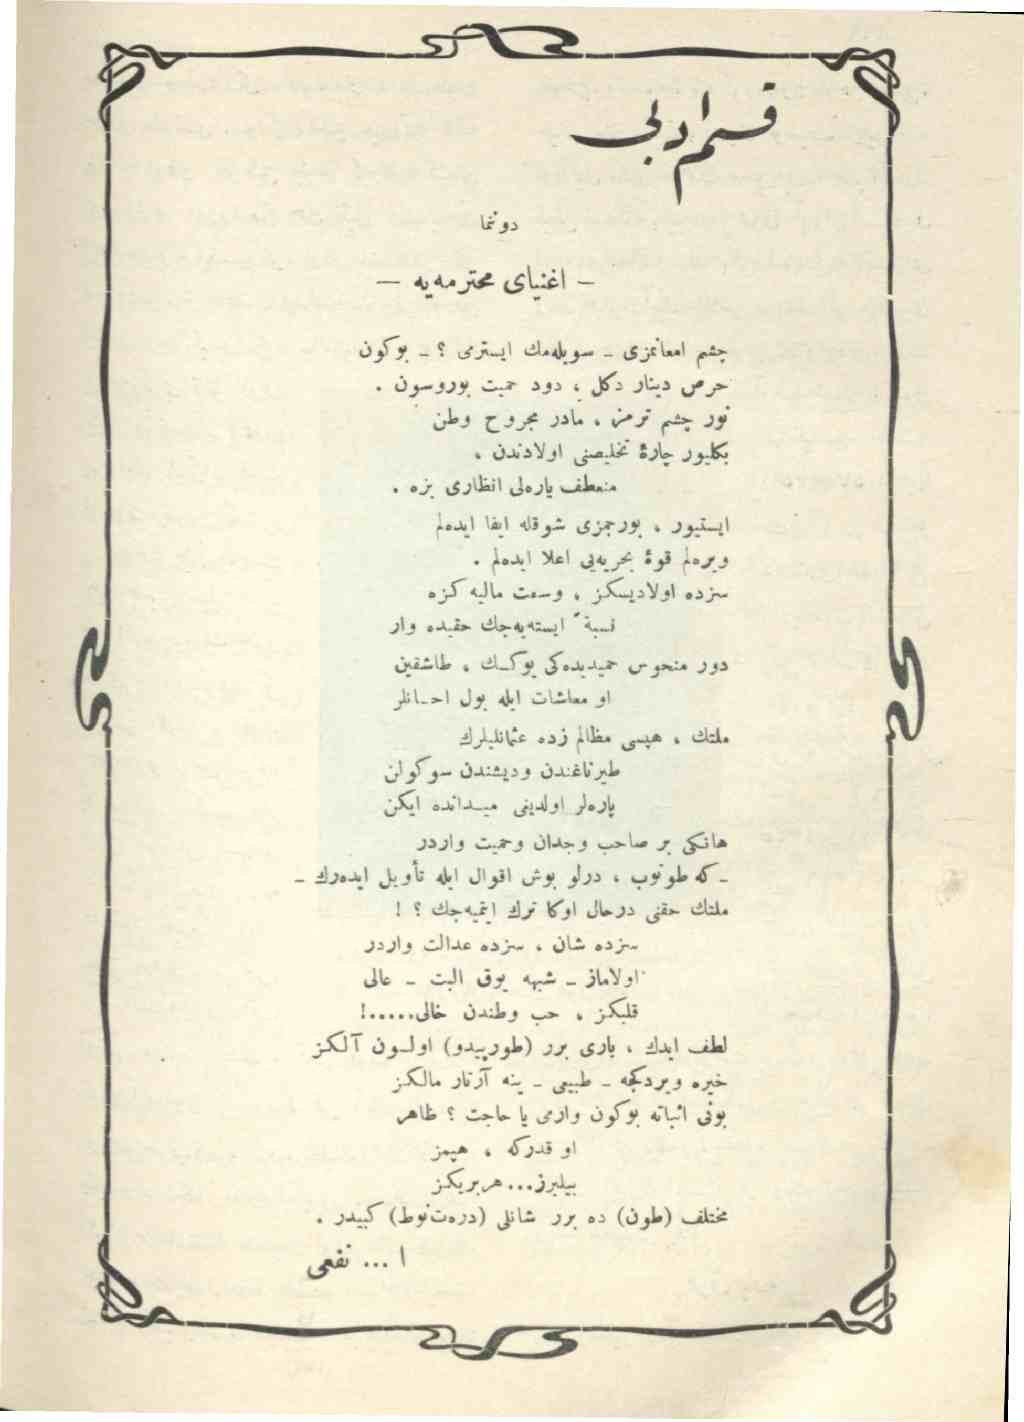 قسم ادبی
دوننما
— اغنیای محترمه‌یه —
چشم امعانمزی ـ سویله‌مك ایسترمی ؟ ـ بوكون
حرص دینار دكل ، دود حمیت بوروسون .
نور چشم ترمز ، مادر مجروح وطن
بكلیور چارهٔ تخلیصنی اولادندن ،
منعطف یاره‌لی انظاری بزه .
ایستیور ، بورجمزی شوقله ایفا ایده‌لم
ویره‌لم قوهٔ بحریه‌یی اعلا ایده‌لم .
سزده اولادیسكز ، وسعت مالیه كزه
نسبةً ایسته‌یه‌جك حقیده وار
دور منحوس حمیدیده‌كی یوكسك ، طاشقین
او معاشات ایله بول احسانلر
ملتك ، هپسی مظالم زده عثمانلیلرك
طیرناغندن ودیشندن سوكولن
پاره‌لر اولدیغی میـدانده ایكن
هانكی بر صاحب وجدان وحمیت واردر
ـ كه طوتوب ، درلو بوش اقوال ایله تأویل ایده‌رك ـ
ملتك حقنی درحال اوكا ترك ایتمیه‌جك ؟ !
سزده شان ، سزده عدالت واردر
اولاماز ـ شبهه یوق البت ـ عالی
قلبكز ، حب وطندن خالی.....!
لطف ایدك ، باری برر (طورپیدو) اولـون آلـكز
خیره ویردكجه ـ طبیعی ـ ینه آرتار مالكز
بونی اثباته بوكون وارمی یا حاجت ؟ ظاهر
او قدركه ، هپمز
بیلیرز... هربریكز
مختلف (طون) ده برر شانلی (دره‌تنوط) كبیدر .
ا ... نفعی